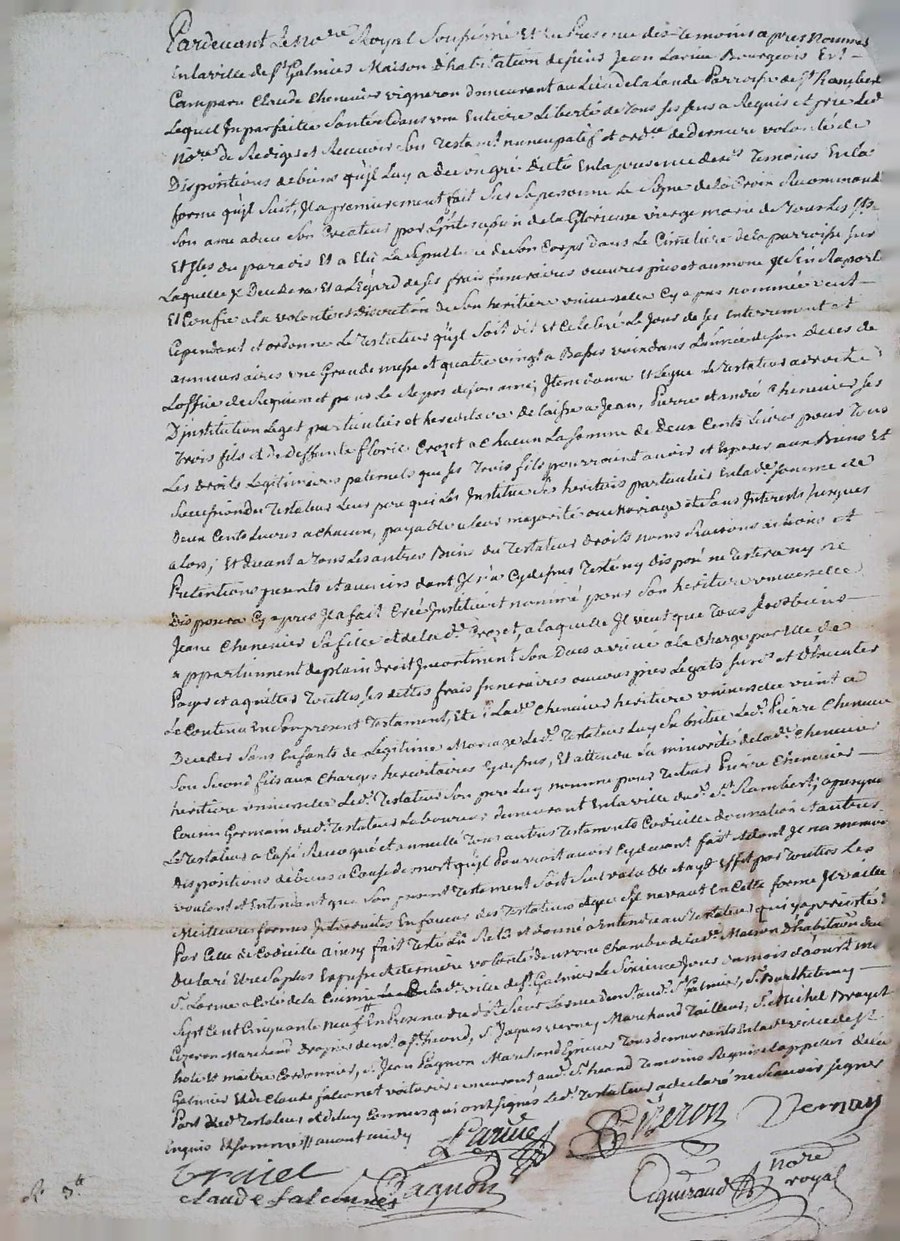 Pardevant Le No.re Royal Soussigné Et En Presence des Temoins apres nommes
En la ville de S.t Galmier Maison D'habitation de sieur Jean Larive Bourgeois Est
Comparu Claude Chenevier vigneron demeurant au Lieu de la Lande Parroisse de S.t Rambert
Lequel En parfaitte Santé Et dans une Entiere Liberté de tous ses sens a Requis et prié Led.
No.re de Rediger et Recevoir Son Testam.t nuncupatif et ord.ce de derniere volonté de
Dispositions de biens qu'il Luy a de son gré dicté En la presence desd.s Temoins En la
forme qu'il Suit, Il a premierement fait Sur Sa personne Le Signe de la Croix Recommandé
Son ame a dieu Son Createur par L'intercession de la Glorieuse vierge marie de Tous Les S.ts
Et S.tes du paradis Et a Elû La Sepulture de Son Corps dans Le Cimetiere de la parroisse Sur
Laquelle Il Decedera Et a L'égard de ses frais funeraires oeuvres pies et aumone Il S'En Raporte
Et Confie a la volonté et discretion de Son heritiere universelle Cy apres nommée veut
Cependant et ordonne Le Testateur qu'il Soit dit et Celebré Le Jour de Ses Enterrement et
anniversaires une Grande messe et quatre vingt a Basses voix dans L'année de Son Deces de
L'office de Requiem et pour Le Repos de Son ame; Item donne et Legue Le Testateur a droit
D'institution Legat particulier et hereditaire delaisse a Jean, Pierre et andré Chenevier Ses
Trois fils et de deffunte florie Crozet a Chacun La Somme de Deux Cents Livres pour Tous
Les droits Legitimaires paternels que Ses Trois fils pourroient avoir et Esperer aux Biens Et
Succession du Testateur Leur pere qui Les Institue Ses heritiers particuliers En lad.e Somme de
Deux Cents Livres a Chacun, payable a leur majorité ou Mariage et Sans Interests Jusques
alors; Et Quant a Tous Les autres Biens du Testateur droits noms Raisons actions et
Pretentions presents et avenirs dont Il n'a Cy dessus Testé ny Disposé ne Testera ny ne
Disposera Cy apres Il a fait Créé Institué et nommé pour Son heritiere universelle
Jeane Chenevier Sa fille et de lad.e Crozet, a laquelle Il veut que Tous Sesd. biens
appartiennent de plain droit Incontinent Son Deces arrivé a la Charge par Elle de
Payer et aquitter Toutes Ses dettes frais funeraires oeuvres pies Legats Susd.s et D'Executer
Le Contenu En Son present Testament, Et Si Lad.e Chenevier heritiere universelle vient a
Deceder Sans Enfants de Legitime Mariage Led. Testateur Luy Substitue Led. Pierre Chenevier
Son Second fils aux Charges hereditaires Cy dessus, Et attendu La minorité de lad.e Chenevier
heritiere universelle Led. Testateur Son pere Luy nomme pour Tuteur Pierre Chenevier
Cousin Germain dud. Testateur Laboureur demeurant En la ville dud. S.t Rambert; a presque
Le Testateur a Cassé Revoqué et annullé Tous autres Testaments Codicille donnation et autres
Dispositions de biens a Cause de mort qu'il Pourroit avoir Cy devant fait et dont Il n'a memoire
voulant et Entendant que Son present Testement Soit Seul valable et aye Effet par Toutes Les
Meilleures formes Introduites En faveur des Testateurs et que S'il ne vaut En Cette forme Il vaille
Par Celle de Codicille ainsy fait Testé Lû Relû et donné a Entendre au Testateur qui y a persisté
Declaré Etre Sa plus Expresse et derniere volonté dans une Chambre de lad.e Maison D'habitation du
S.r Larive a Coté de la Cuisine En Lad. ville de S.t Galmier Le Sixieme Jour du mois d'aoust mil
Sept Cent Cinquante neuf En Presence dud. S.r Jean Larive de S.t Galmier, S.r Barthelemy
Cizeron Marchand Drapier de S.t heand, S.r Jaques verney Marchand Tailleur, S.r Michel Brayet
hote et maitre Cordonnier, S.r Jean Pagnon Marchand Epicier Tous demeurants En lad. ville de S.t
Galmier Et de Claude falconet voiturier demeurant aud. S.t heand Temoins Requis et appelles de la
Part dud. Testateur et de luy Connus qui ont Signés Led. Testateur a declaré ne Scavoir Signer
Enquis Et Sommé avant midy
Larive Cizeron Vernay
Braiet
claude falconnet Pagnon Eyguiraud no.re royal
R. 3.